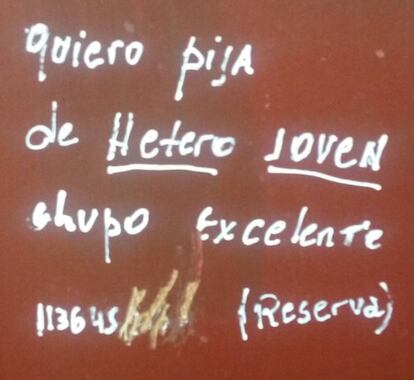 quiero pija
de Hetero JOVEN
chupo Excelente
113645 (Reserva)